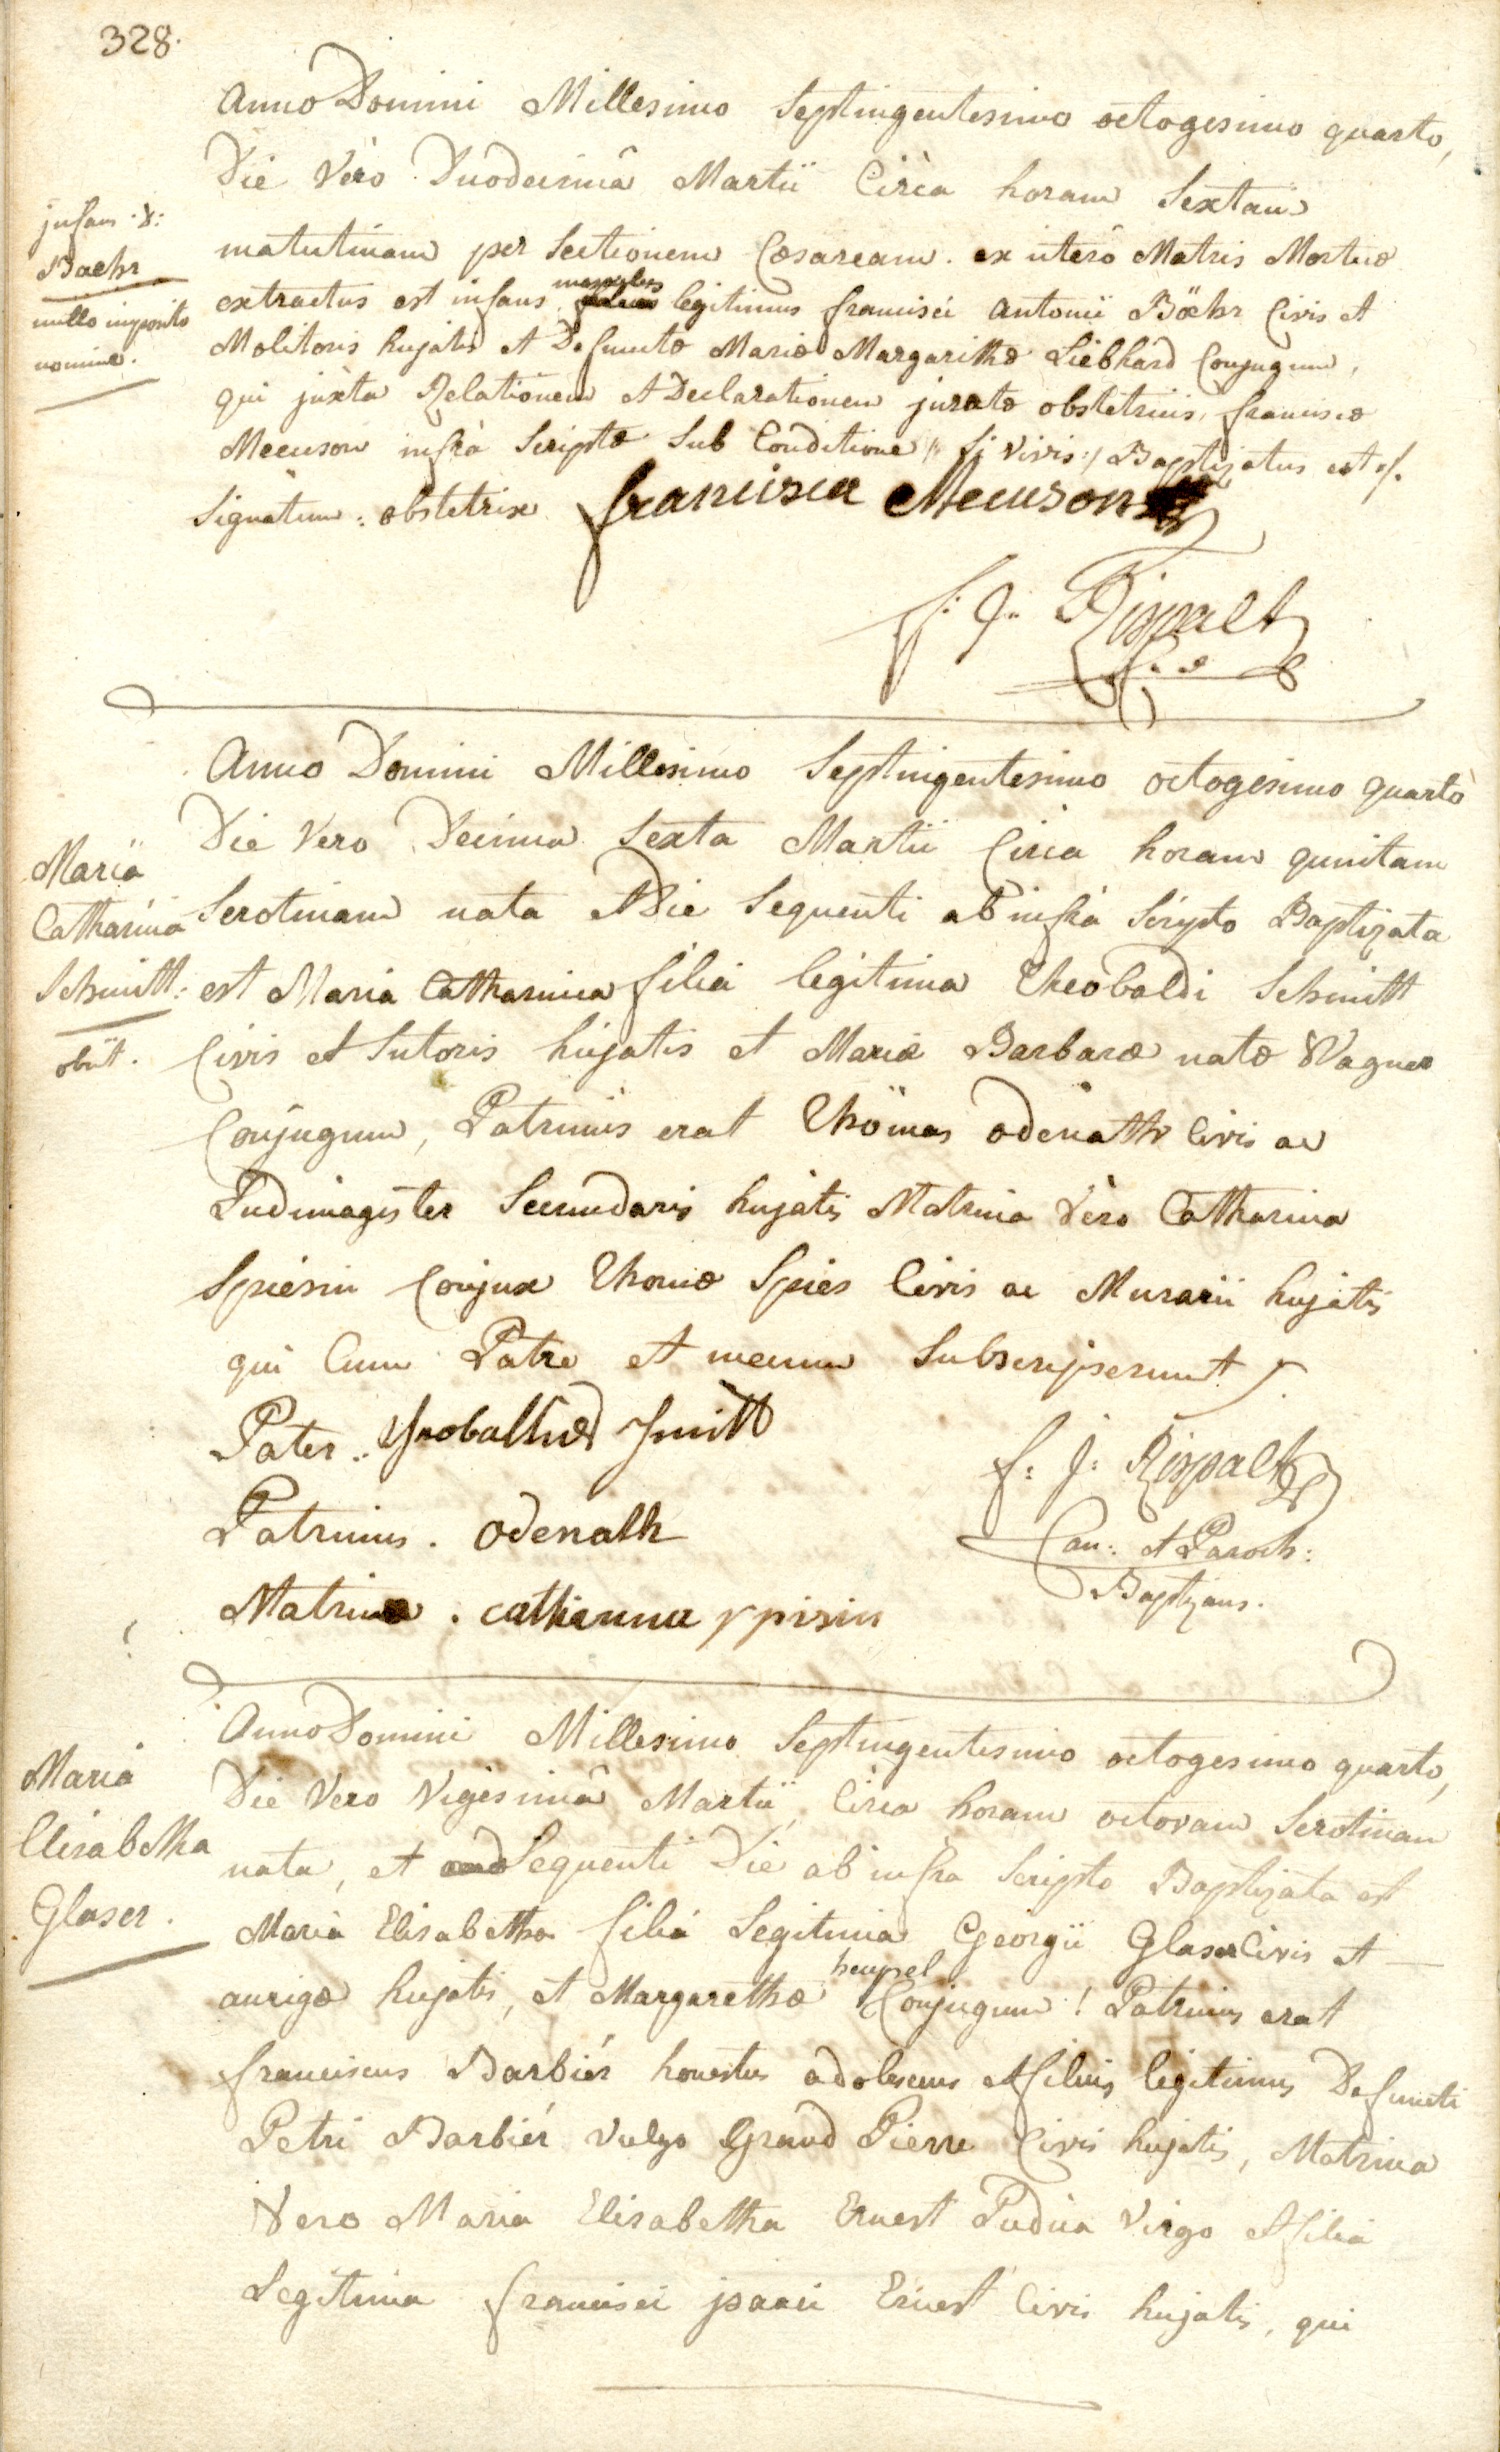 328.
Anno Domini Millesimo Septingentesimo octogesimo quarto,
Die Vero Duodecimâ Martii Circa horam Sextam
matutinam per Sectionem Cæsaream ex utero Matris Mortuæ
infans
Baehr
nullo imposito
nomine.
extractus est infans masculus legitimus francisci Antonii Bæhr Civis et
Molitoris hujatis et Defunctæ Mariæ Margarithæ Liebhard Conjugum,
qui juxta Relationem et Declarationem juratæ obstetricis, franciscæ
Mecuson infrà Scriptæ Sub Conditione /: si vivis :/ Baptizatus est
Signatum: obstetrix francisca Mecuson
f: J: Rispalt
Anno Domini Millesimo Septingentesimo octogesimo quarto
Die Vero Decima Sexta Martii Circa horam quintam
Maria
Catharina
Schmitt:
obiit.
Serotinam nata et Die Sequenti ab infrà Scripto Baptizata
est Maria Catharina filia legitima Theobaldi Schmitt
Civis et Sutoris hujatis et Mariæ Barbaræ natæ Wagner
Conjugum, Patrinus erat Thomas odenath Civis ac
Ludimagister Secundaris hujatis Matrina Vero Catharina
Spiesin Conjux Thomæ Spies Civis ac Murarii hujatis
qui Cum Patre et mecum Subscripserunt
Pater: Smitt
Patrinus. odenath
Matrina. catharina spisin
f: J: Rispalt
Can: et Paroch:
Baptizans.
Anno Domini Millesimo Septingentesimo octogesimo quarto,
Maria
Elisabetha
Glaser.
Die Vero Vigesimâ Martii, Circa horam octovam Serotinam
nata, et Sequenti Die ab infra Scripto Baptizata est
Maria Elisabetha filia Legitima Georgii Glaser Civis et
aurigæ hujatis, et Margarethæ hempel Conjugum! Patrinus erat
franciscus Barbier honestus adolescens et filius legitimus Defuncti
Petri Barbier vulgo Grand Pierre Civis hujatis, Matrina
Vero Maria Elisabetha Ernest Pudica Virgo et filia
Legitima francisci jsaaci Ernest Civis hujatis, qui